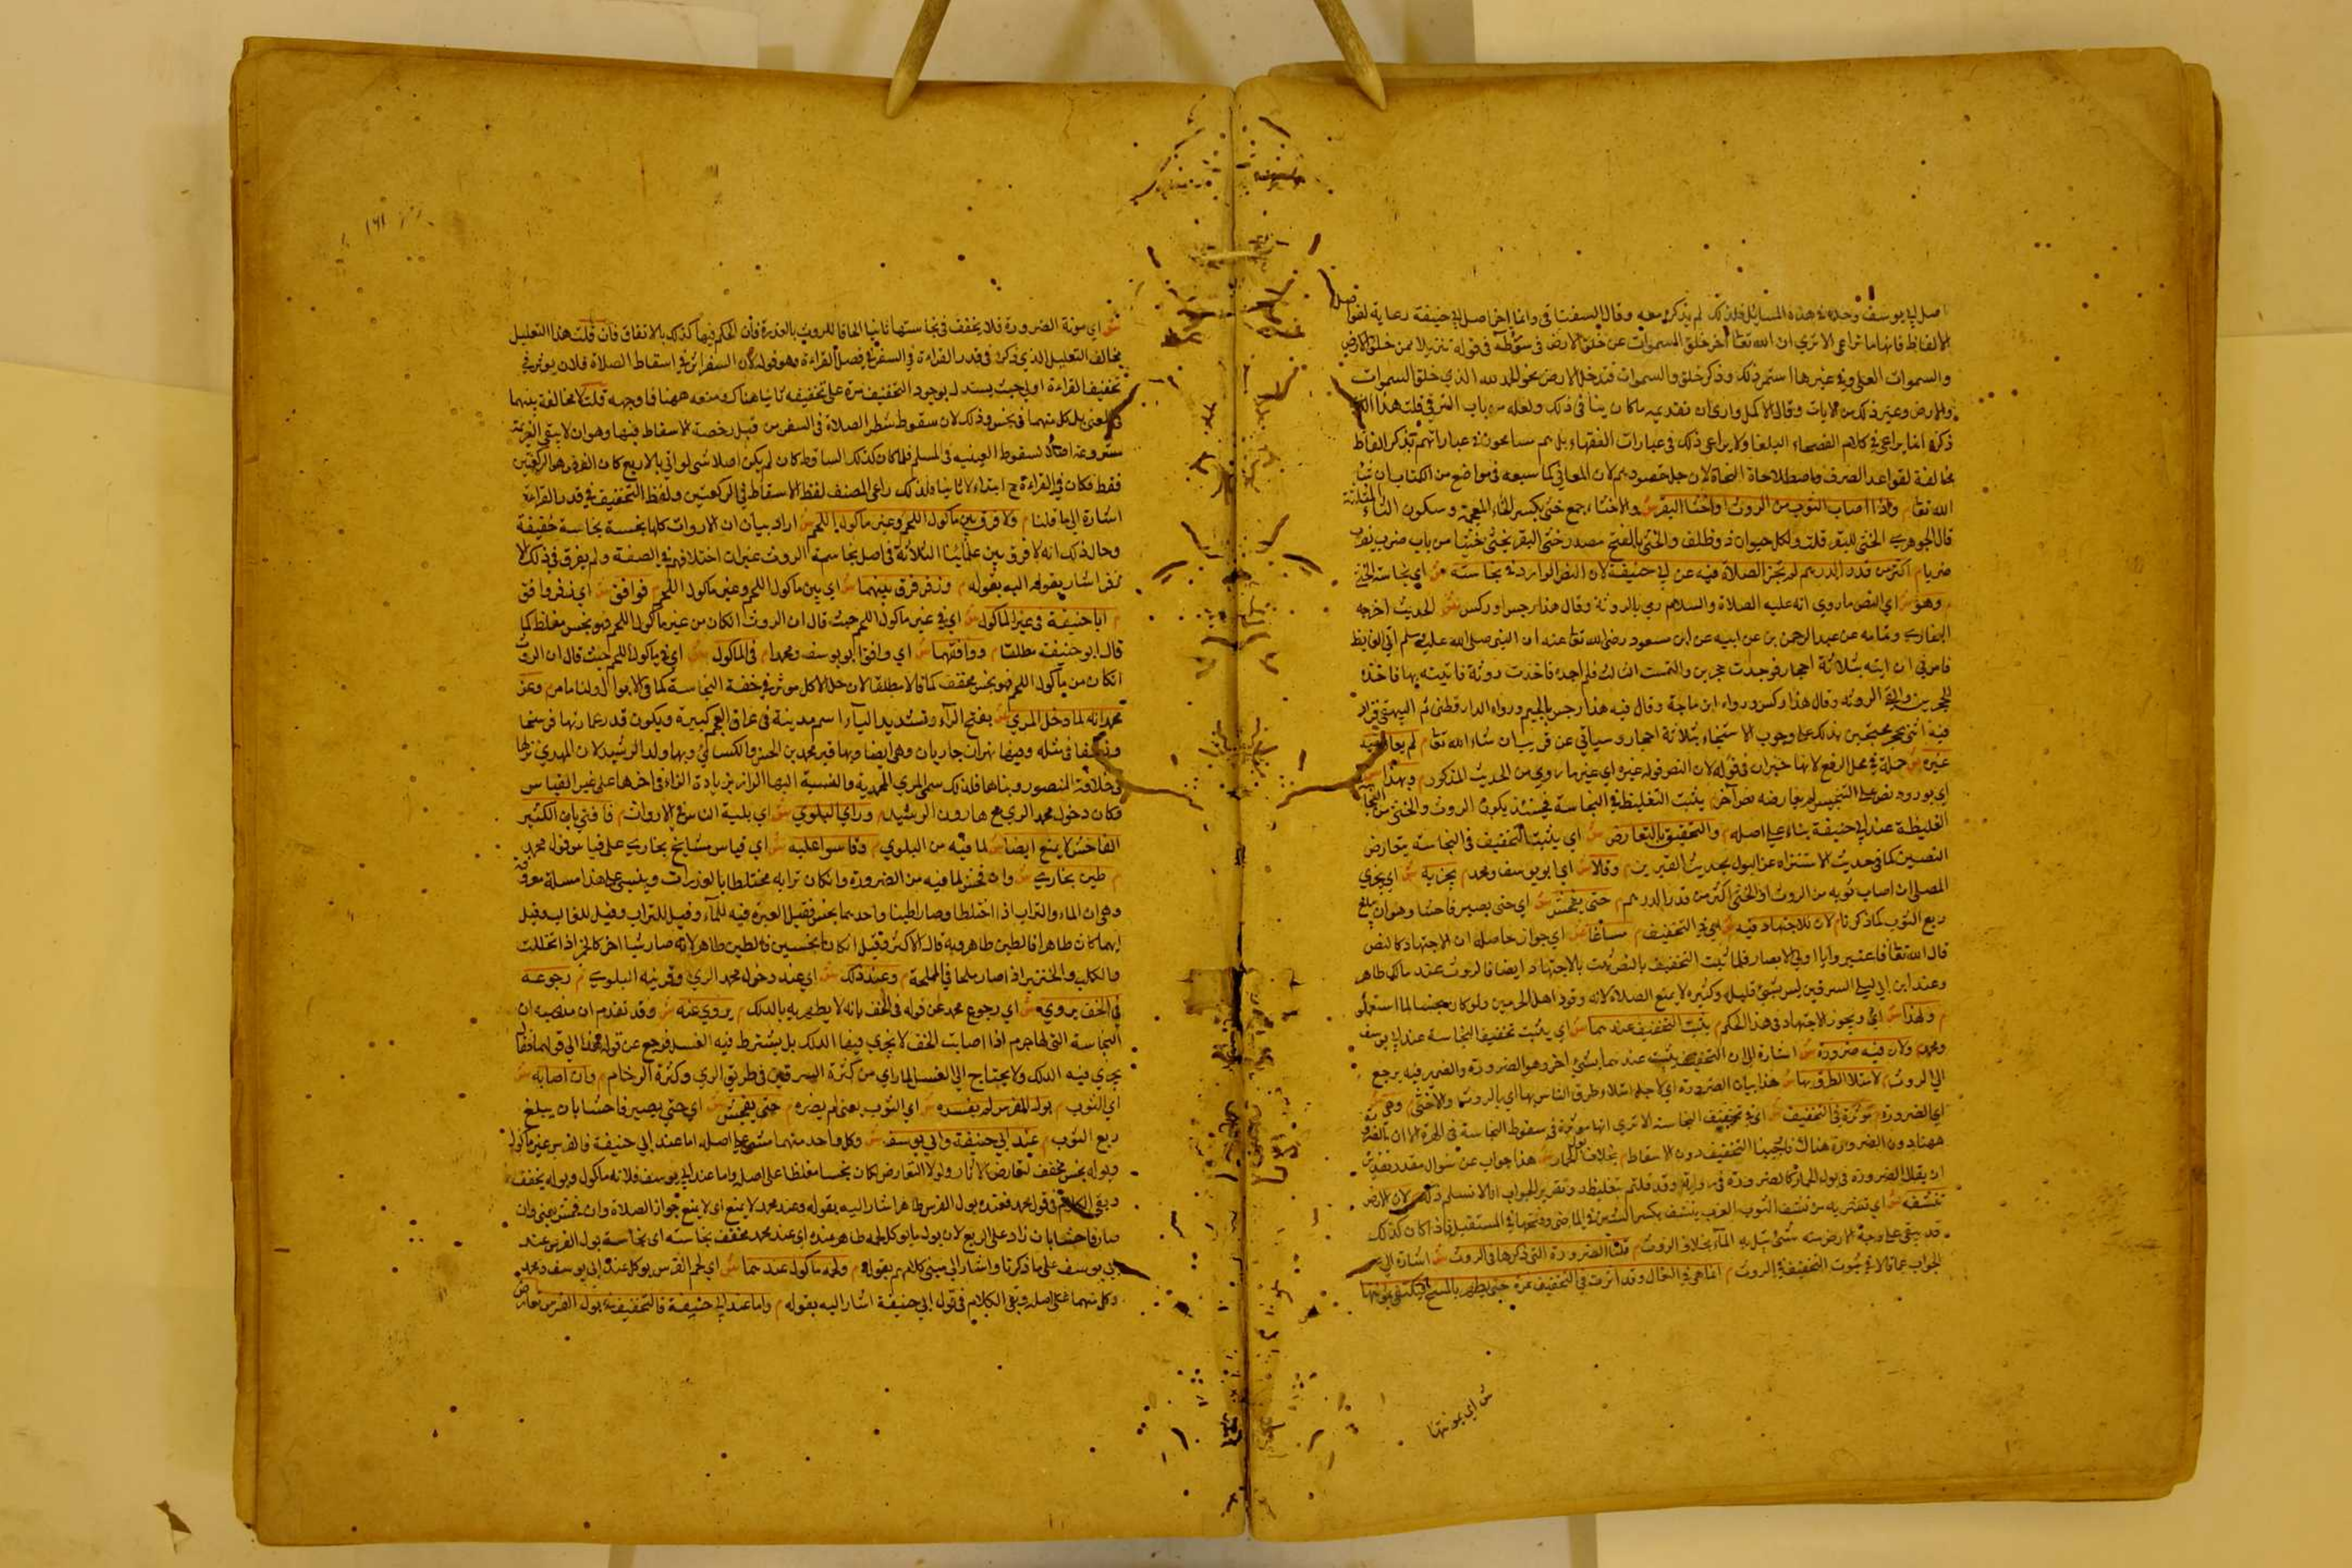 اصل ابي يوسف وحده في هذه المسايل فلذلك لم يذكره معه وقال السغناقي وانما اخر اصل ابي حنيفة رعاية لفواصل
الالفاظ فانها مما تراعى الا تري ان الله تعا اخر خلق السموات عن خلق الارض في سورة طه في قوله تنزيلا ممن خلق الارض
والسموات العلى وفي غيرها استمر ذلك وذكر خلق السموات قبل خلق الارض نحو الحمد لله الذي خلق السموات
والارض وغير ذلك من الايات وقال الاكمل واري ان تقديمه ما كان ينافي ذلك ولعله من باب الترقي قلت هذا الذي
ذكره انما يراعى في كلام الفصحاء البلغا ولا يراعى ذلك في عبارات الفقهاء بل هم يسامحون في عباراتهم بذكر الفاظ
مخالفة لقواعد الصرف واصطلاحات النحاة لان جل مقصودهم لان المعاني كما سيجي في مواضع من الكتاب ان شا
الله تعا م واذا اصاب الثوب من الروث او اخثا البقر ش والاخثاء جمع خثي بكسر الخاء المعجمة وسكون الثاء المثلثة
قال الجوهري الخثي للبقر قلت ولكل حيوان ذو ظلف والخثي بالفتح مصدر خثى البقر يخثي خثيا من باب ضرب يضرب
ضربا م اكثر من قدر الدرهم لم تجز الصلاة فيه عن ابي حنيفة لان النص الوارد في نجاسته ش اي نجاسة الخثي
م وهو ش اي النص ما روي انه عليه الصلاة والسلام رمي بالروثة وقال هذا رجس او ركس ش الحديث اخرجه
البخاري وتمامه عن عبد الرحمن بن عن ابيه عن ابن مسعود رضي الله تعا عنه ان النبي صلى الله عليه وسلم اتي الغايط
فامرني ان اتيه بثلاثة احجار فوجدت حجرين والتمست الثالث فلم اجده فاخذت روثة فاتيته بها فاخذ
الحجرين والقى الروثه وقال هذا ركس ورواه ابن ماجة وقال فيه هذا رجس بالجيم ورواه الدارقطني ثم البيهقي فزاد
فيه ائتني بحجر محتجين بذلك على وجوب الاستنجاء بثلاثة احجار وسياتي عن قريب ان شاء الله تعا م لم يعارضه
غيره ش جملة في محل الرفع لانها خبر ان في قوله لان النص قوله غيره اي غير ما روي من الحديث المذكور م وبهذا ش
اي بورود نص على التنجيس لم يعارضه نص آخر م يثبت التغليظ في النجاسة فحينئذ يكون الروث والخثي من النجا
الغليظة عند ابي حنيفة بناء على اصله م والتخفيف بالتعارض ش اي يثبت التخفيف في النجاسة بتعارض
النصين كما في حديث الاستنزاه عن البول بحديث العرنيين م وقالا ش اي ابو يوسف ومحمد م يجزيه ش اي يجزي
المصلي ان اصاب ثوبه من الروث او الخثي اكثر من قدر الدرهم م حتى يفحش ش اي حتى يصير فاحشا وهو ان يبلغ
ربع الثوب كما ذكرنا م لان للاجتهاد فيه ش اي في التخفيف م مساغا ش اي جواز حاصله ان الاجتهاد كالنص
قال الله تعا فاعتبروا يا اولي الابصار فلما ثبت التخفيف بالنص ثبت بالاجتهاد ايضا فالروث عند مالك طاهر
وعند ابن ابي ليلى السرقين ليس بشئ قليله وكثيره لا يمنع الصلاة لانه وقود اهل الحرمين ولو كان نجسا لما استعملو
م ولهذا ش اي ويجوز الاجتهاد في هذا الحكم م يثبت التخفيف عندهما ش اي يثبت تخفيف النجاسة عند ابي يوسف
ومحمد م ولان فيه ضرورة ش اشارة الى ان التخفيف يثبت عندهما بشئ آخر وهو الضرورة والضمير فيه يرجع
الى الروث م لامتلا الطرق بها ش هذا بيان الضرورة اي لاجل امتلاء طرق الناس بها اي بالروث والاخثي م وهي ش
اي الضرورة م مؤثرة في التخفيف ش اي في تخفيف النجاسة الا تري انها مؤثرة في سقوط النجاسة في الهرة الا ان الضرورة
ههنا دون الضرورة هناك فاوجبنا التخفيف دون الاسقاط م بخلاف بول الحمار ش هذا جواب عن سؤال مقدر تقديره
ان يقال الضرورة في بول الحمار كالضرورة في روثه وقد قلتم بتغليظه وتقرير الجواب انا لا نسلم ذلك م لان الارض
تنشفه ش اي تشربه من نشف الثوب العرق ينشف بكسر الشين في الماضي وفتحها في المستقبل فاذا كان كذلك
قد يبقى على وجه الارض منه شئ يبتلى به المار بخلاف الروث م قلنا الضرورة التي ذكرها في الروث ش اشارة الى
الجواب عما قالا في ثبوت التخفيف في الروث م انما هي في النعال وقد اثرت في التخفيف مرة حتى يطهر بالمسح فيكتفى بمؤنتها
ش اي بمؤنتها
ش اي مؤنة الضرورة فلا يخفف في نجاستها ثانيا الحاقا للروث بالعذرة فان الحكم فيها كذلك بالاتفاق فان قلت هذا التعليل
يخالف التعليل الذي ذكره في قدر القراءة في السفر في فصل القراءة وهو قوله لان السفر اثر في اسقاط الصلاة فلان يوثر في
تخفيف القراءة اولى حيث يستدل بوجود التخفيف مرة على تخفيفه ثانيا هناك ومنعه ههنا فما وجهه قلت لا مخالفة بينهما
في المعنى بل كل منهما في نحو ذلك لان سقوط شطر الصلاة في السفر من قبل رخصة الاسقاط فيها وهو ان لا يبقى العزيمة
مشروعة اصلا لسقوط العينية في المسلم فلما كان كذلك الساقط كان لم يكن اصلا حتى لو اتى بالاربع كان الفرض هو الركعتين
فقط فكان في القراءة ح ابتداء لا ثانيا ولذلك راعى المصنف لفظ الاسقاط في الركعتين ولفظ التخفيف في قدر القراءة
اشارة الى ما قلنا م ولا فرق بين ماكول اللحم وغير ماكول اللحم ش اراد بيان ان الارواث كلها نجسة نجاسة خفيفة
وحال ذلك انه لا فرق بين علمائنا الثلاثة في اصل نجاسة الروث غير ان اختلافهم في الصفة ولم يفرق في ذلك الا
زفر اشار بقوله اليه بقوله م وزفر فرق بينهما ش اي بين ماكول اللحم وغير ماكول اللحم م فوافق ش اي زفر وافق
م ابا حنيفة في غير الماكول ش اي في غير ماكول اللحم حيث قال ان الروث ان كان من غير ماكول اللحم فهو نجس مغلظ كما
قال ابو حنيفة مطلقا م ووافقهما ش اي وافق ابو يوسف ومحمدا م في الماكول ش اي في ماكول اللحم حيث قال ان الروث
ان كان من ماكول اللحم فهو نجس مخفف كما قالا مطلقا لان حل الاكل موثر في خفة النجاسة كما في الابوال ولنا ما مر م وعن
محمد انه لما دخل الري ش بفتح الراء وتشديد الياء اسم مدينة في عراق العجم كبيرة ويكون قدر عمارتها فرسخا
ونصفا في مثله وفيها نهران جاريان وهي ايضا وبها قبر محمد بن الحسن والكسائي وبها ولد الرشيد لان المهدي نزلها
في خلافة المنصور وبناها فلذلك سمي الري المحمدية والنسبة اليها الرازي بزيادة الزاء في اخرها على غير القياس
وكان دخول محمد الري مع هارون الرشيد م وراي البلوي ش اي بلية الناس في الارواث م فافتي بان الكثير
الفاحش لا يمنع ايضا ش لما فيه من البلوي م وقاسوا عليه ش اي قياس مشايخ بخاري على قياس قول محمد
م طين بخاري ش وان فحش لما فيه من الضرورة وان كان ترابه مختلطا بالعذرات وينبني على هذا مسلة معروفة
وهي ان الماء والتراب اذا اختلطا وصارا طينا واحدهما نجس فقيل العبرة فيه للماء وقيل للتراب وقيل للغالب وقيل
ايهما كان طاهرا فالطين طاهر وبه قال الاكثر وقيل ان كانا نجسين فالطين طاهر لانه صار شيا اخر كالخمر اذا تخللت
والكلب والخنزير اذا صار ملحا في المملحة م وعند ذلك ش اي عند دخوله محمد الري وقرينه البلوي م رجوعه
في الخف يروي ش اي رجوع محمد عن قوله في الخف بانه لا يطهر به بالدلك م يروي عنه ش وقد تقدم ان مذهبه ان
النجاسة التي لها جرم اذا اصابت الخف لا يجزي فيها الدلك بل يشترط فيه الغسل فرجع عن قوله هذا الى قولهما فقا
يجزي فيه الدلك ولا يحتاج الى الغسل لما راي من كثرة السرقين في طريق الري وكثرة الزحام م وان اصابه ش
اي الثوب م بول الفرس لم يفسده ش اي الثوب يعني لم يضره م حتى يفحش ش اي حتى يصير فاحشا بان يبلغ
ربع الثوب م عند ابي حنيفة وابي يوسف ش وكل واحد منهما مشى على اصله اما عند ابي حنيفة فالفرس غير ماكول
وبوله نجس مخفف لتعارض الاثار ولولا التعارض لكان نجسا مغلظا على اصله واما عند ابي يوسف فلانه ماكول وبوله مخفف
وبقي الكلام في قول محمد فعنده بول الفرس طاهر اشار اليه بقوله وعند محمد لا يمنع اي لا يمنع جواز الصلاة وان فحش يعني وان
صار فاحشا بان زاد على الربع لان بول ما يوكل لحمه طاهر عنده اي عند محمد مخفف نجاسته اي نجاسة بول الفرس عند
ابي يوسف على ما ذكرنا واشار الى مبنى كلامهم بقوله م ولحمه ماكول عندهما ش اي لحم الفرس يوكل عند ابي يوسف ومحمد
وكل منهما على اصله وبقي الكلام في قول ابي حنيفة اشار اليه بقوله م واما عند ابي حنيفة فالتخفيف في بول الفرس لتعارض